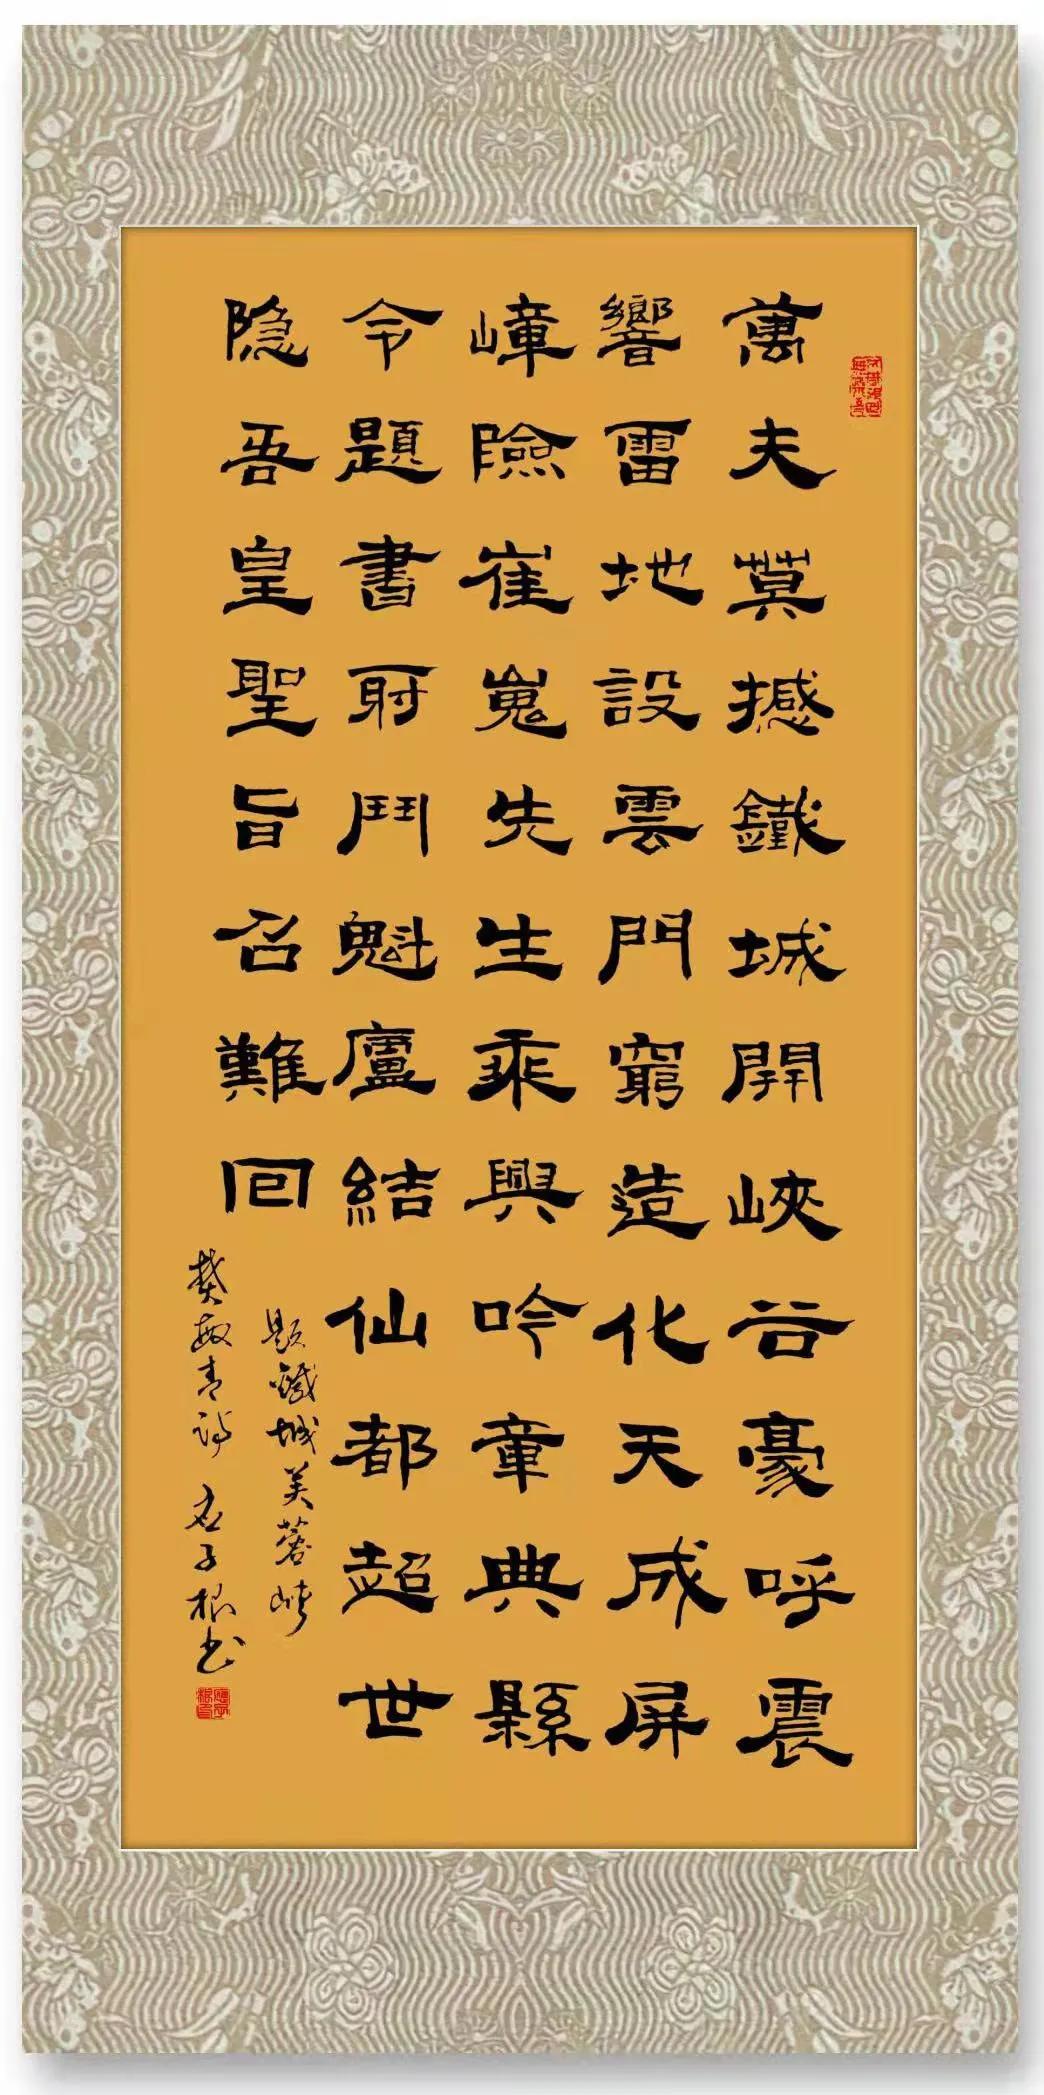 萬夫莫撼鐵城開峽谷豪呼震
響雷地設雲門窮造化天成屏
嶂險崔嵬先生乘興吟章典縣
令題書射鬥魁廬結仙都超世
隐吾皇聖旨召難回
题鐵城芙蓉峽
樊敏青詩 应子根书